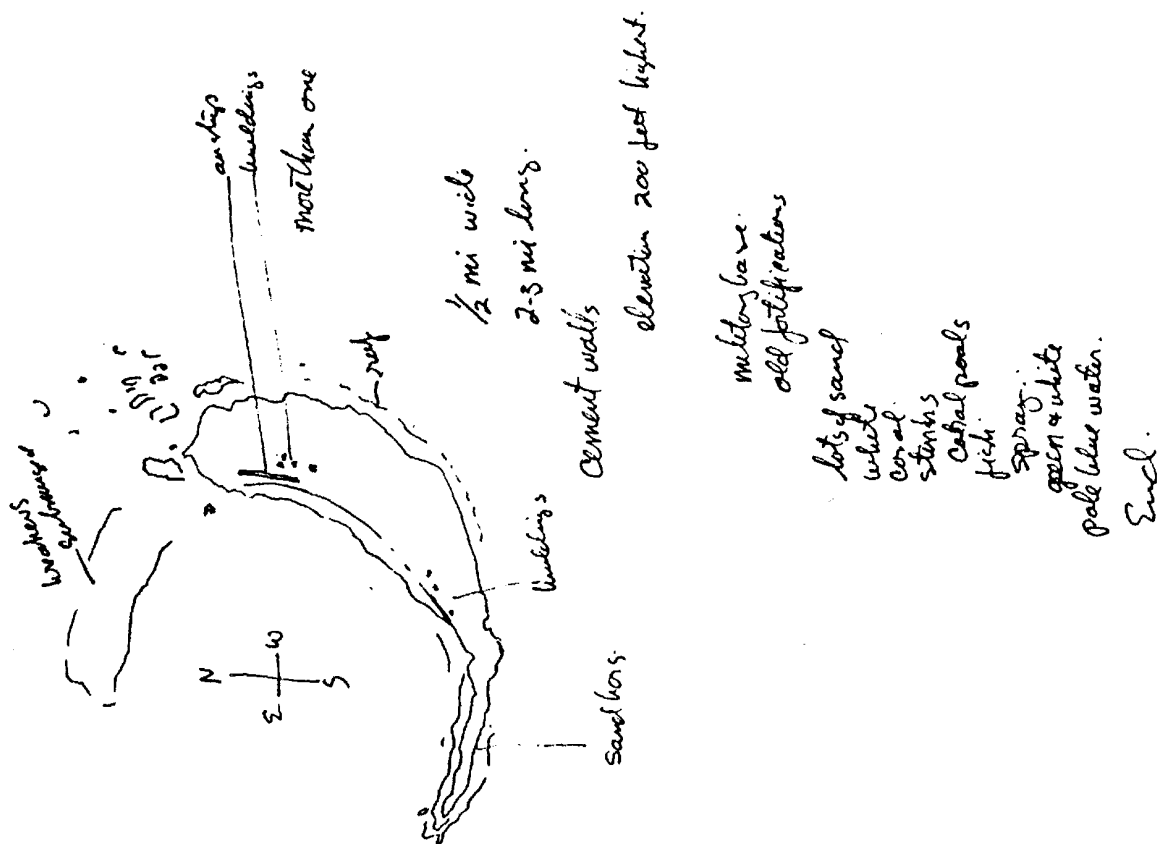 breakers
submerged
N
E W
S
airstrip
buildings
more than one
reef
1/2 mi wide
2-3 mi long.
buildings
cement walls
sand bars.
elevation 200 feet highest.
military base.
old fortifications
lots of sand
white
coral
stinks
coral pools
fish
spray.
green & white
pale blue water.
End